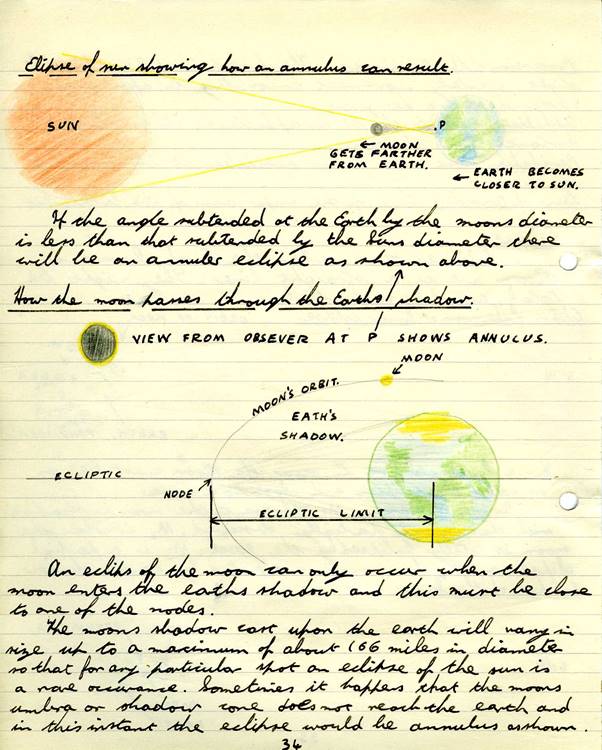 Elipse of sun showing how an annulus can result.
SUN
.P
← MOON
GETS FARTHER
FROM EARTH.
← EARTH BECOMES
CLOSER TO SUN.
If the angle subtended at the Earth by the moons diameter
is less than that subtended by the Suns diameter there
will be an annuler eclipse as shown above.
How the moon passes through the Earths shadow.
VIEW FROM OBSEVER AT P SHOWS ANNULUS.
MOON
MOON'S ORBIT.
EATH'S
SHADOW.
ECLIPTIC
NODE
ECLIPTIC LIMIT
An eclips of the moon can only occur when the
moon enters the eaths shadow and this must be close
to one of the nodes.
The moons shadow cast upon the earth will vary in
size up to a maximum of about 166 miles in diameter
so that for any particular spot an eclipse of the sun is
a rare occurance. Sometimes it happens that the moons
umbra or shadow cone does not reach the earth and
in this instant the eclipse would be annulus as shown.
34